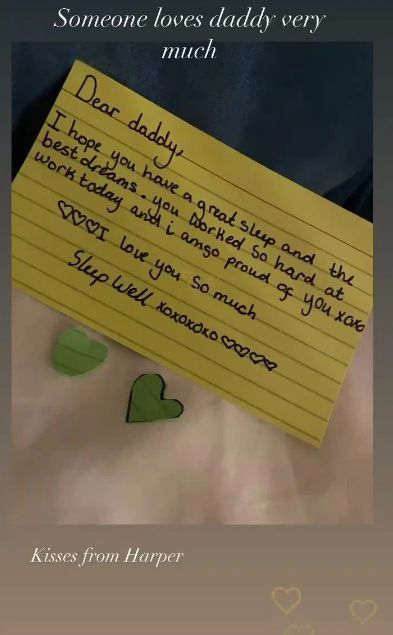 Someone loves daddy very
much
Dear daddy,
I hope you have a great sleep and the
best dreams. you worked so hard at
work today and i amso proud of you xoxo
♡♡♡I love you so much
Sleep Well xoxoxoxo ♡♡♡♡
Kisses from Harper